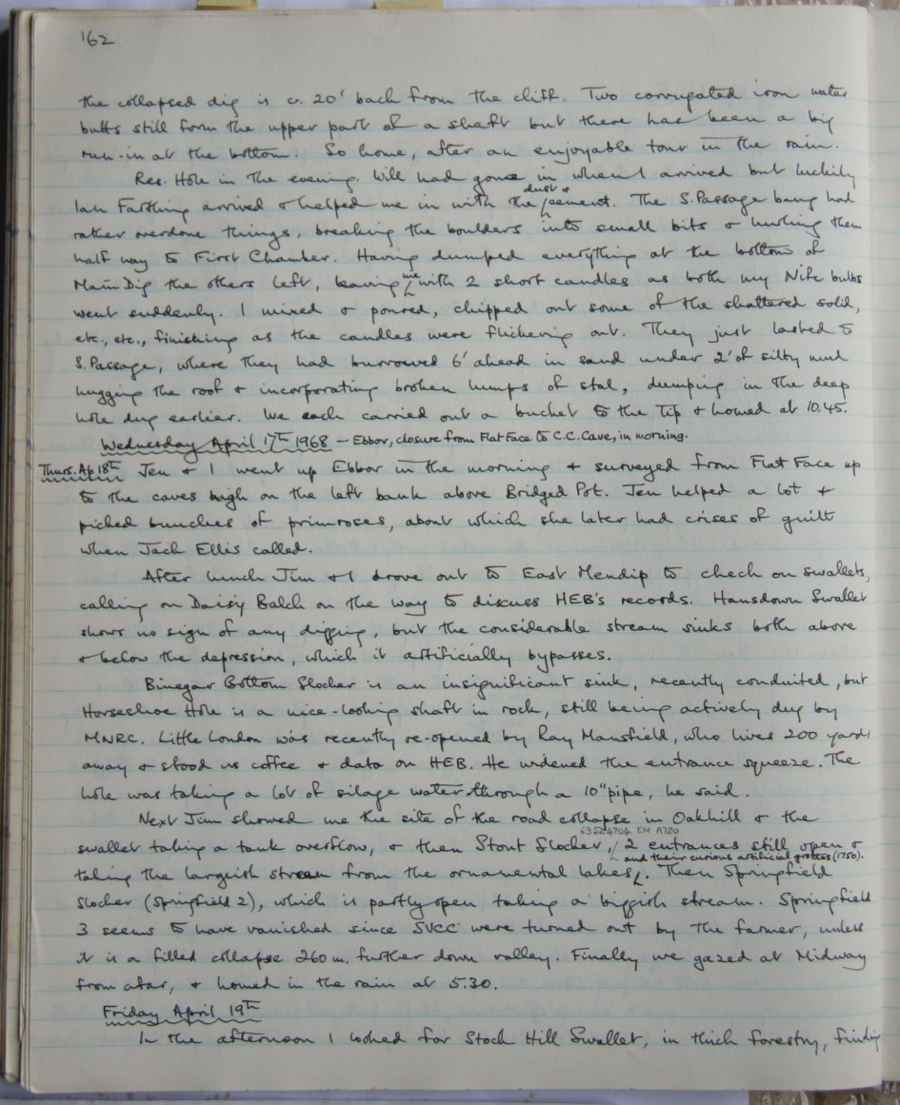 162
the collapsed dig is c. 20' back from the cliff. Two corrugated iron water
butts still form the upper part of a shaft but there has been a big
run-in at the bottom. So home, after an enjoyable tour in the rain.
Res. Hole in the evening. Will had gone in when I arrived but luckily
Ian Farthing arrived & helped me in with the dust & cement. The S. Passage bang had
rather overdone things, breaking the boulders into small bits & hurling them
half way to First Chamber. Having dumped everything at the bottom of
Main Dig the others left, leaving me with 2 short candles as both my Nife bulbs
went suddenly. I mixed & poured, chipped out some of the shattered solid,
etc., etc., finishing as the candles were flickering out. They just lasted to
S. Passage, where they had burrowed 6' ahead in sand under 2' of silty mud
hugging the roof & incorporating broken lumps of stal, dumping in the deep
hole dug earlier. We each carried out a bucket to the tip & homed at 10.45.
Wednesday April 17th 1968 – Ebbor, closure from Flat Face to C.C. Cave, in morning.
Thurs. Ap 18th Jen & I went up Ebbor in the morning & surveyed from Flat Face up
to the caves high on the left bank above Bridged Pot. Jen helped a lot &
picked bunches of primroses, about which she later had crises of guilt
when Jack Ellis called.
After lunch Jim & I drove out to East Mendip to check on swallets,
calling on Daisy Balch on the way to discuss HEB's records. Hansdown Swallet
shows no sign of any digging, but the considerable stream sinks both above
& below the depression, which it artificially bypasses.
Binegar Bottom Slocker is an insignificant sink, recently conduited, but
Horseshoe Hole is a nice-looking shaft in rock, still being actively dug by
MNRC. Little London was recently re-opened by Ray Mansfield, who lives 200 yards
away & stood us coffee & data on HEB. He widened the entrance squeeze. The
hole was taking a lot of silage water through a 10" pipe, he said.
Next Jim showed me the site of the road collapse in Oakhill & the
swallet taking a tank overflow, & then Stout Slocker, 2 entrances still open &
taking the largeish stream from the ornamental lakes and their curious artificial grottoes (1750). Then Springfield
Slocker (Springfield 2), which is partly open taking a biggish stream. Springfield
3 seems to have vanished since SVCC were turned out by the farmer, unless
it is a filled collapse 260 m. further down valley. Finally we gazed at Midway
from afar, & homed in the rain at 5.30.
Friday April 19th
In the afternoon I looked for Stock Hill Swallet, in thick forestry, finding